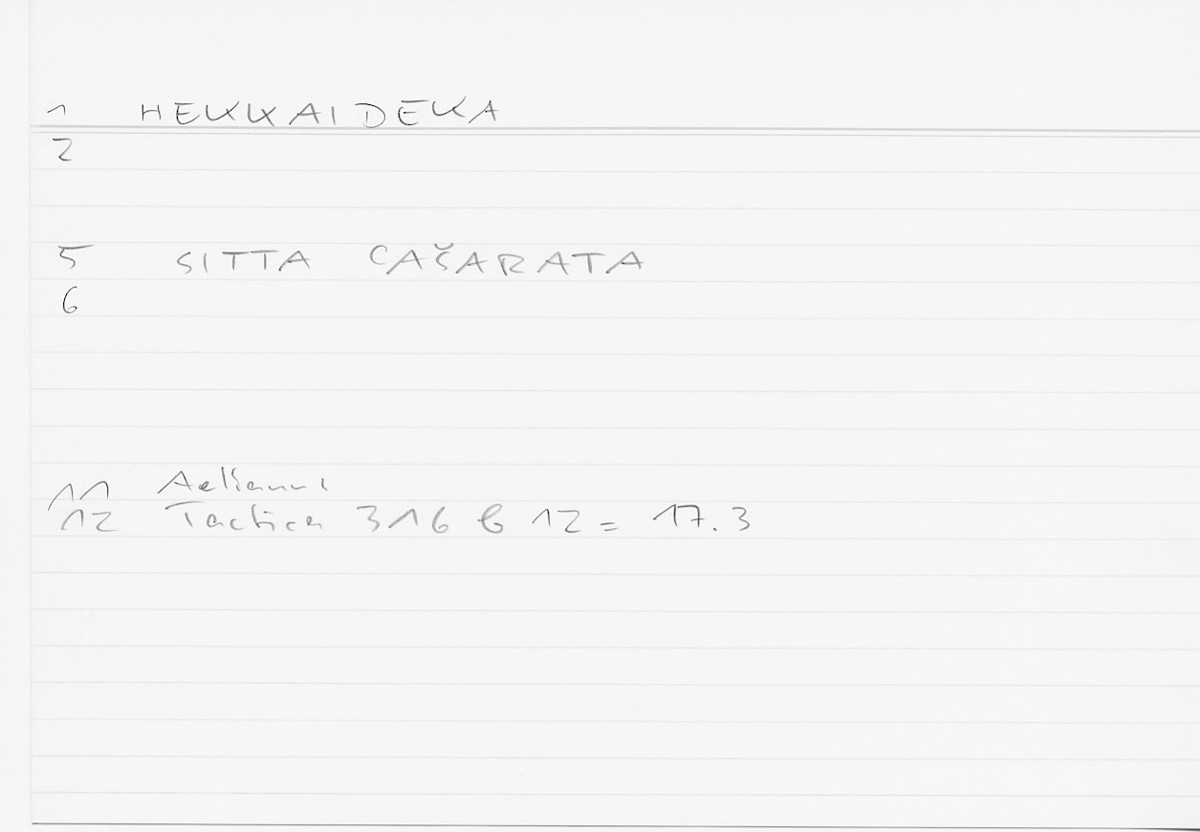 1 HEKKAIDEKA
2
5 SITTA CAŠARATA
6
11 Aeliani
12 Tactica 316 b 12 = 17.3